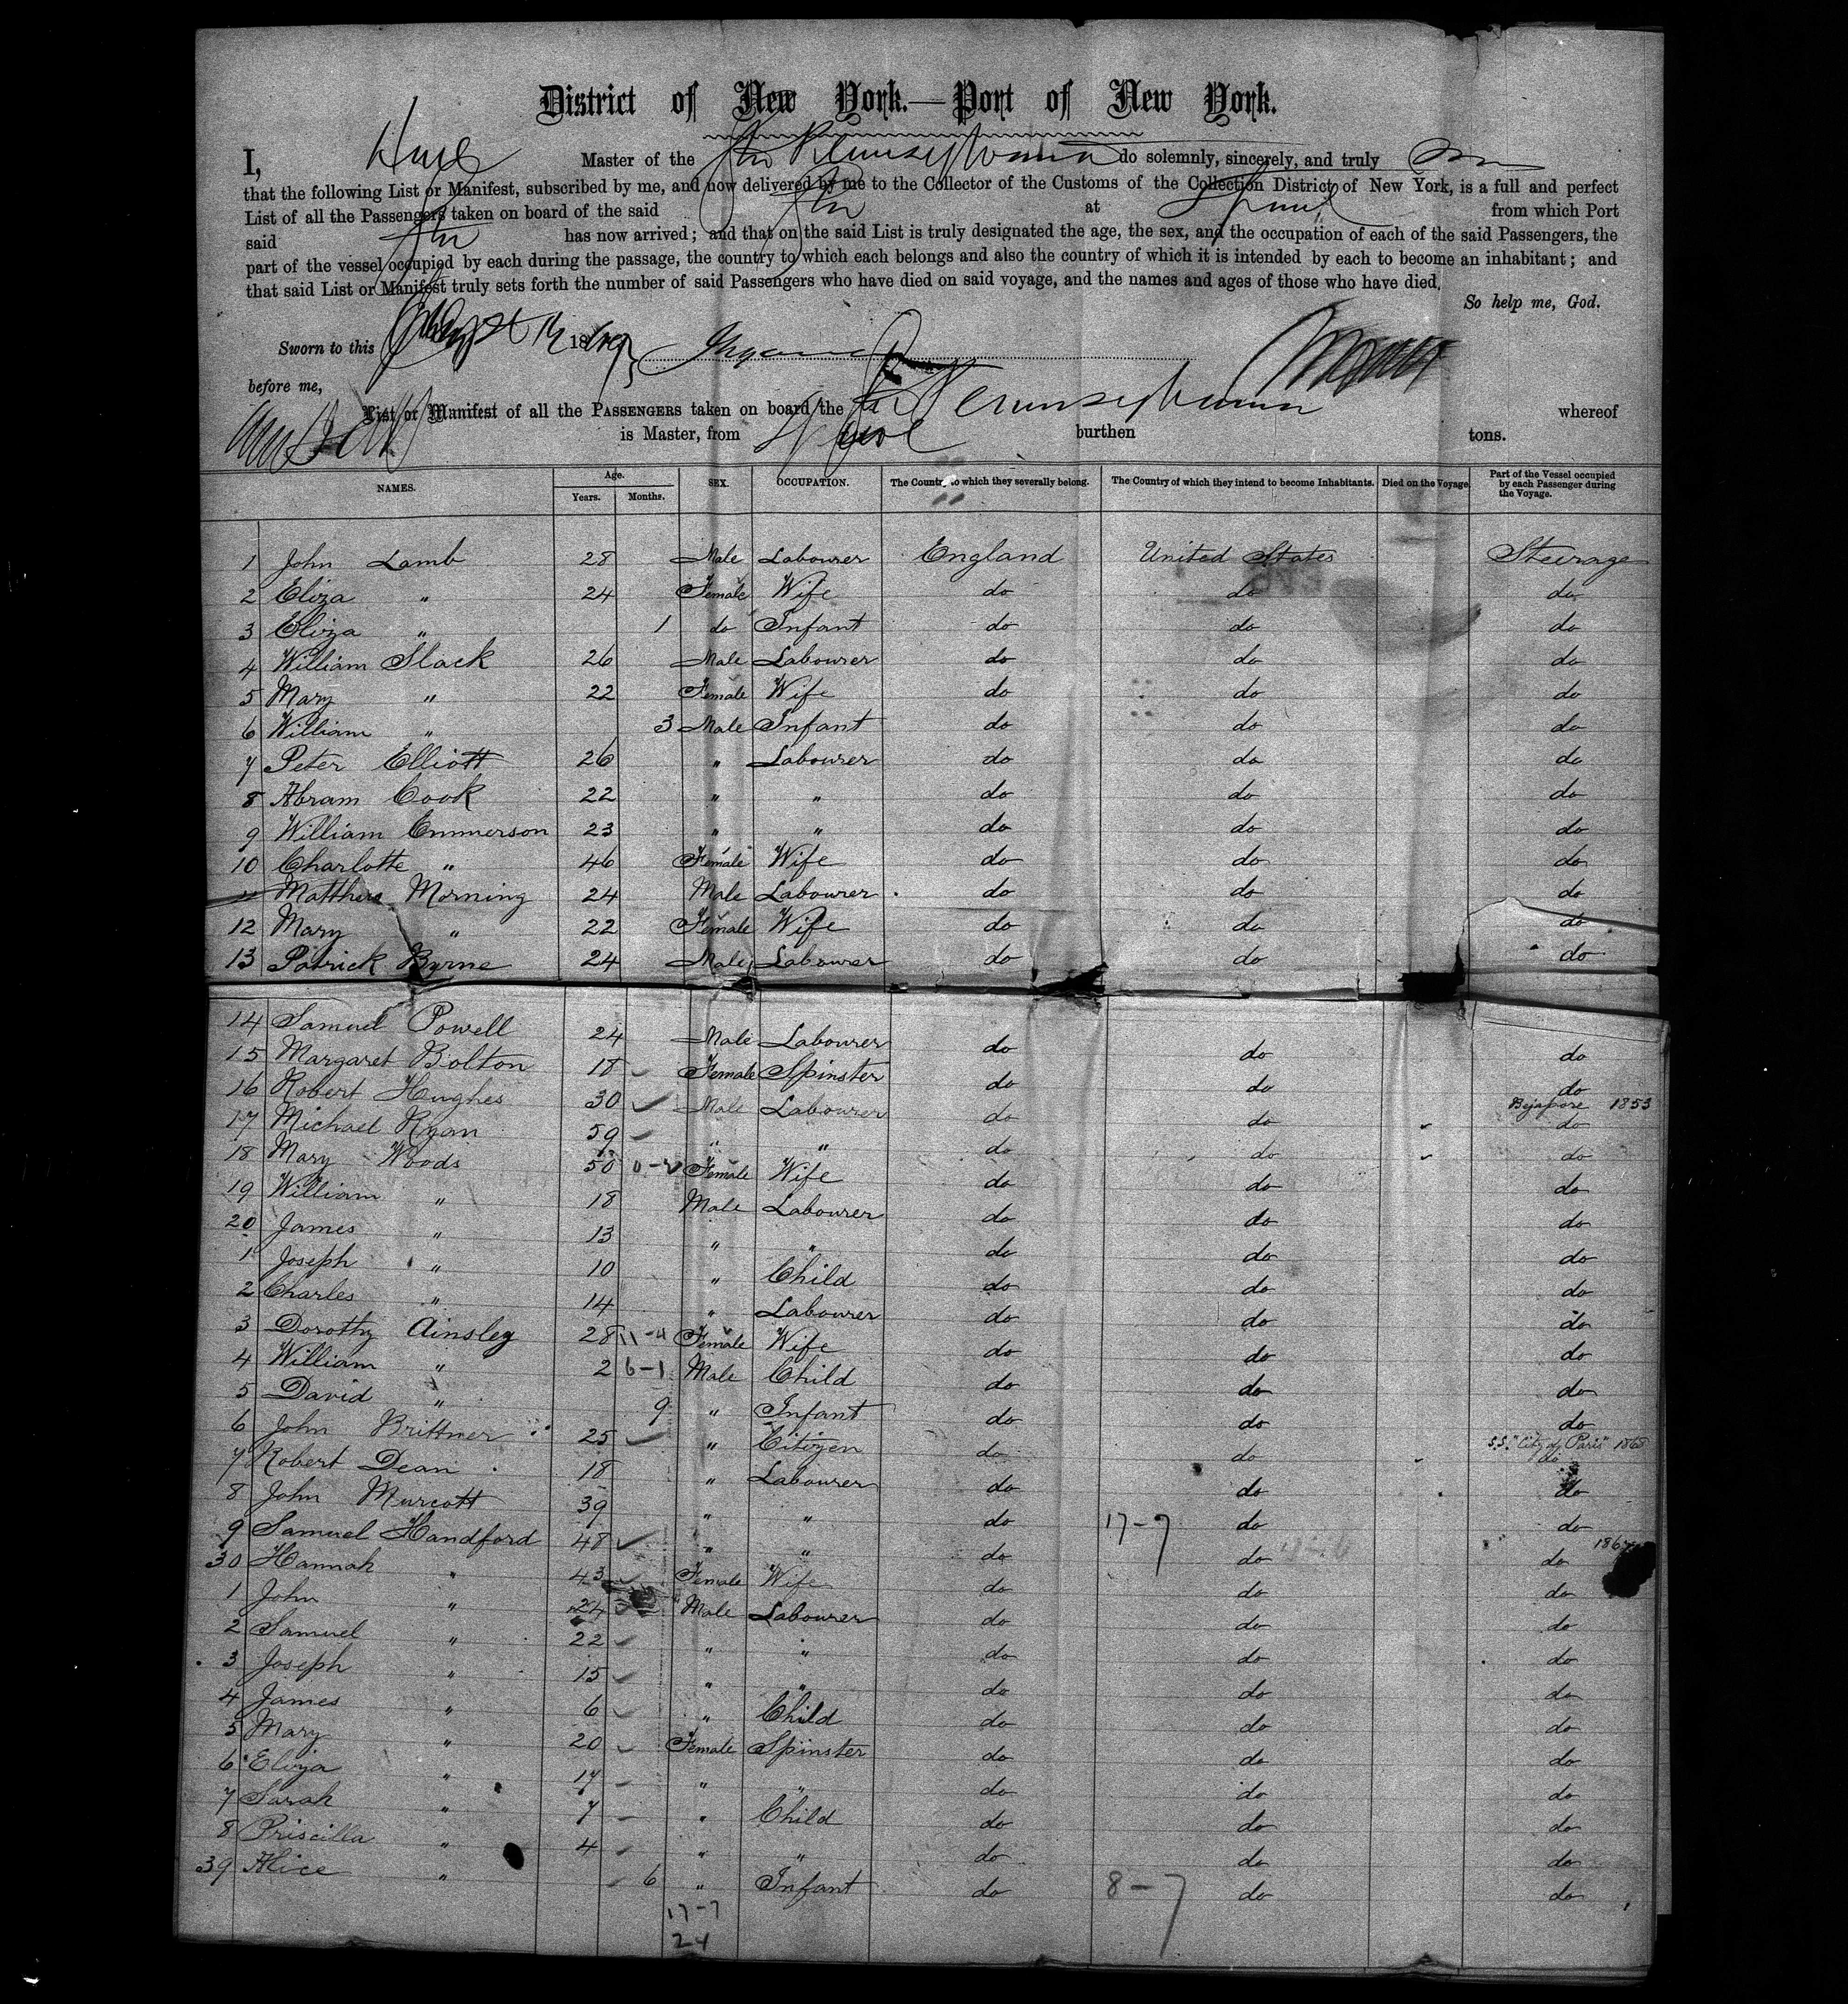 District of New York.—Port of New York.
I, Hall Master of the Str Pennsylvania do solemnly, sincerely, and truly
that the following List or Manifest, subscribed by me, and now delivered by me to the Collector of the Customs of the Collection District of New York, is a full and perfect
List of all the Passengers taken on board of the said Str at from which Port
said Str has now arrived; and that on the said List is truly designated the age, the sex, and the occupation of each of the said Passengers, the
part of the vessel occupied by each during the passage, the country to which each belongs and also the country of which it is intended by each to become an inhabitant; and
that said List or Manifest truly sets forth the number of said Passengers who have died on said voyage, and the names and ages of those who have died.
So help me, God.
Sworn to this 18
before me,
List or Manifest of all the PASSENGERS taken on board the Str Pennsylvania whereof
is Master, from burthen tons.
NAMES. Age. Years. Months. SEX. OCCUPATION. The Country to which they severally belong. The Country of which they intend to become Inhabitants. Died on the Voyage. Part of the Vessel occupied by each Passenger during the Voyage.
1 John Lamb 28 Male Labourer England United States Steerage
2 Eliza " 24 Female Wife do do do
3 Eliza " 1 do Infant do do do
4 William Slack 26 Male Labourer do do do
5 Mary " 22 Female Wife do do do
6 William " 3 Male Infant do do do
7 Peter Elliott 26 " Labourer do do do
8 Abram Cook 22 " " do do do
9 William Emmerson 23 " " do do do
10 Charlotte " 46 Female Wife do do do
11 Matthew Morning 24 Male Labourer do do do
12 Mary " 22 Female Wife do do do
13 Patrick Byrne 24 Male Labourer do do do
14 Samuel Powell 24 Male Labourer do do do
15 Margaret Bolton 18 Female Spinster do do do
16 Robert Hughes 30 Male Labourer do do Bejapore 1853 do
17 Michael Ryan 59 " " do do do
18 Mary Woods 50 Female Wife do do do
19 William " 18 Male Labourer do do do
20 James " 13 " " do do do
1 Joseph " 10 " Child do do do
2 Charles " 14 " Labourer do do do
3 Dorothy Ainsley 28 11-4 Female Wife do do do
4 William " 2 6-1 Male Child do do do
5 David " 9 " Infant do do do
6 John Brittner 25 " Citizen do do S.S. "City of Paris" 1868 do
7 Robert Dean 18 " Labourer do do do
8 John Murcott 39 " " do 17-7 do do
9 Samuel Handford 48 " " do do do 1867
30 Hannah " 43 Female Wife do do do
1 John " 24 Male Labourer do do do
2 Samuel " 22 " " do do do
3 Joseph " 15 " " do do do
4 James " 6 " Child do do do
5 Mary " 20 Female Spinster do do do
6 Eliza " 17 " " do do do
7 Sarah " 7 " Child do do do
8 Priscilla " 4 " " do do do
39 Alice " 6 " Infant do 8-7 do do
17-7
24